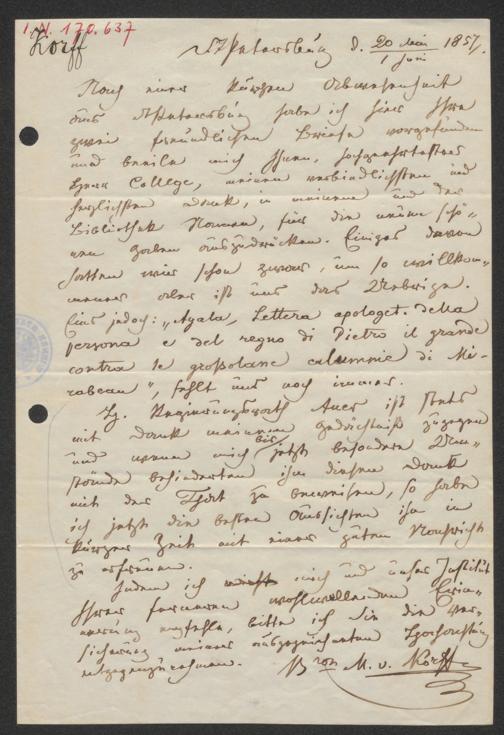 I.N. 170.637
Korff
St Petersburg d. 20 Mai / 1 Juni 1857.
Nach einer kurzen Abwesenheit
aus St Petersburg habe ich hier Ihre
zwei freundlichen Briefe vorgefunden
und beeile mich Ihnen, hochgeehrtester
Herr College, meinen verbindlichsten und
herzlichsten Dank, in meinem und der
Bibliothek Namen, für die neuen schö-
nen Gaben auszudrücken. Einiges davon
hatten wir schon zuvor, um so willkom-
mener aber ist uns das Uebrige.
Eins jedoch: „Ayala, Lettera apologet. della
persona e del regno di Pietro il grande
contra le grossolane calumnie di Mi-
rabeau", fehlt uns noch immer.
H. Regierungsrath Auer ist stets
mit Dank meinem Gedächtniß zugegen
und wenn mich bis jetzt besondere Um-
stände behinderten ihm diesen Dank
mit der That zu beweisen, so habe
ich jetzt die besten Aussichten ihn in
kurzer Zeit mit einer guten Nachricht
zu erfreuen.
Indem ich mich und unser Institut
Ihrer ferneren wohlwollenden Erin-
nerung empfehle, bitte ich Sie die Ver-
sicherung meiner ausgezeichneten Hochachtung
entgegenzunehmen.
Bron M. v. Korff